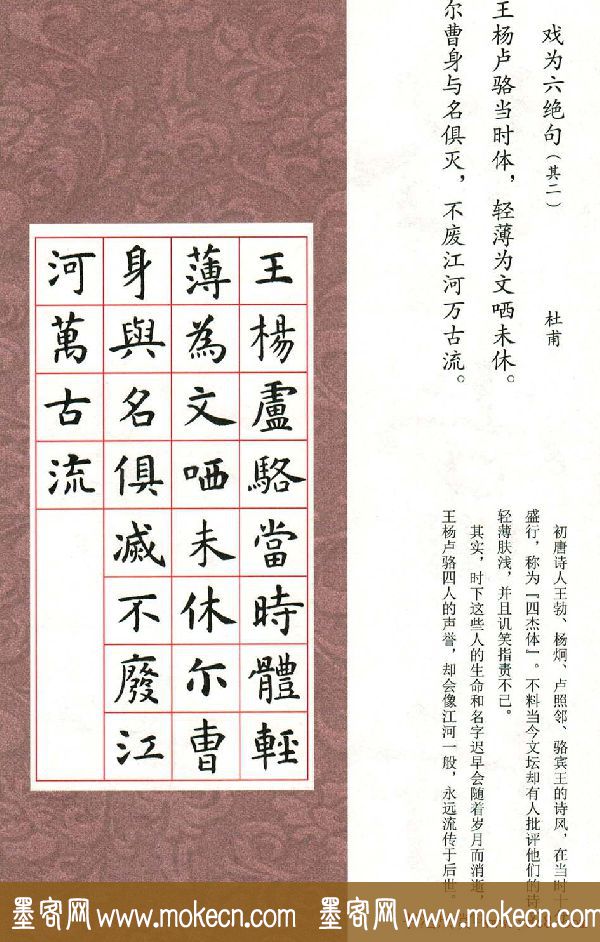 戏为六绝句(其二)
杜甫
王杨卢骆当时体，轻薄为文哂未休。
尔曹身与名俱灭，不废江河万古流。
初唐诗人王勃、杨炯、卢照邻、骆宾王的诗风，在当时十
盛行，称为『四杰体』。不料当今文坛却有人批评他们的诗
轻薄肤浅，并且讥笑指责不已。
其实，时下这些人的生命和名字迟早会随着岁月而消逝，
王杨卢骆四人的声誉，却会像江河一般，永远流传于后世。
王楊盧駱當時體輕
薄為文哂未休尔曹
身與名俱滅不廢江
河萬古流
墨客网 www.mokecn.com 墨客网 www.mokecn.com